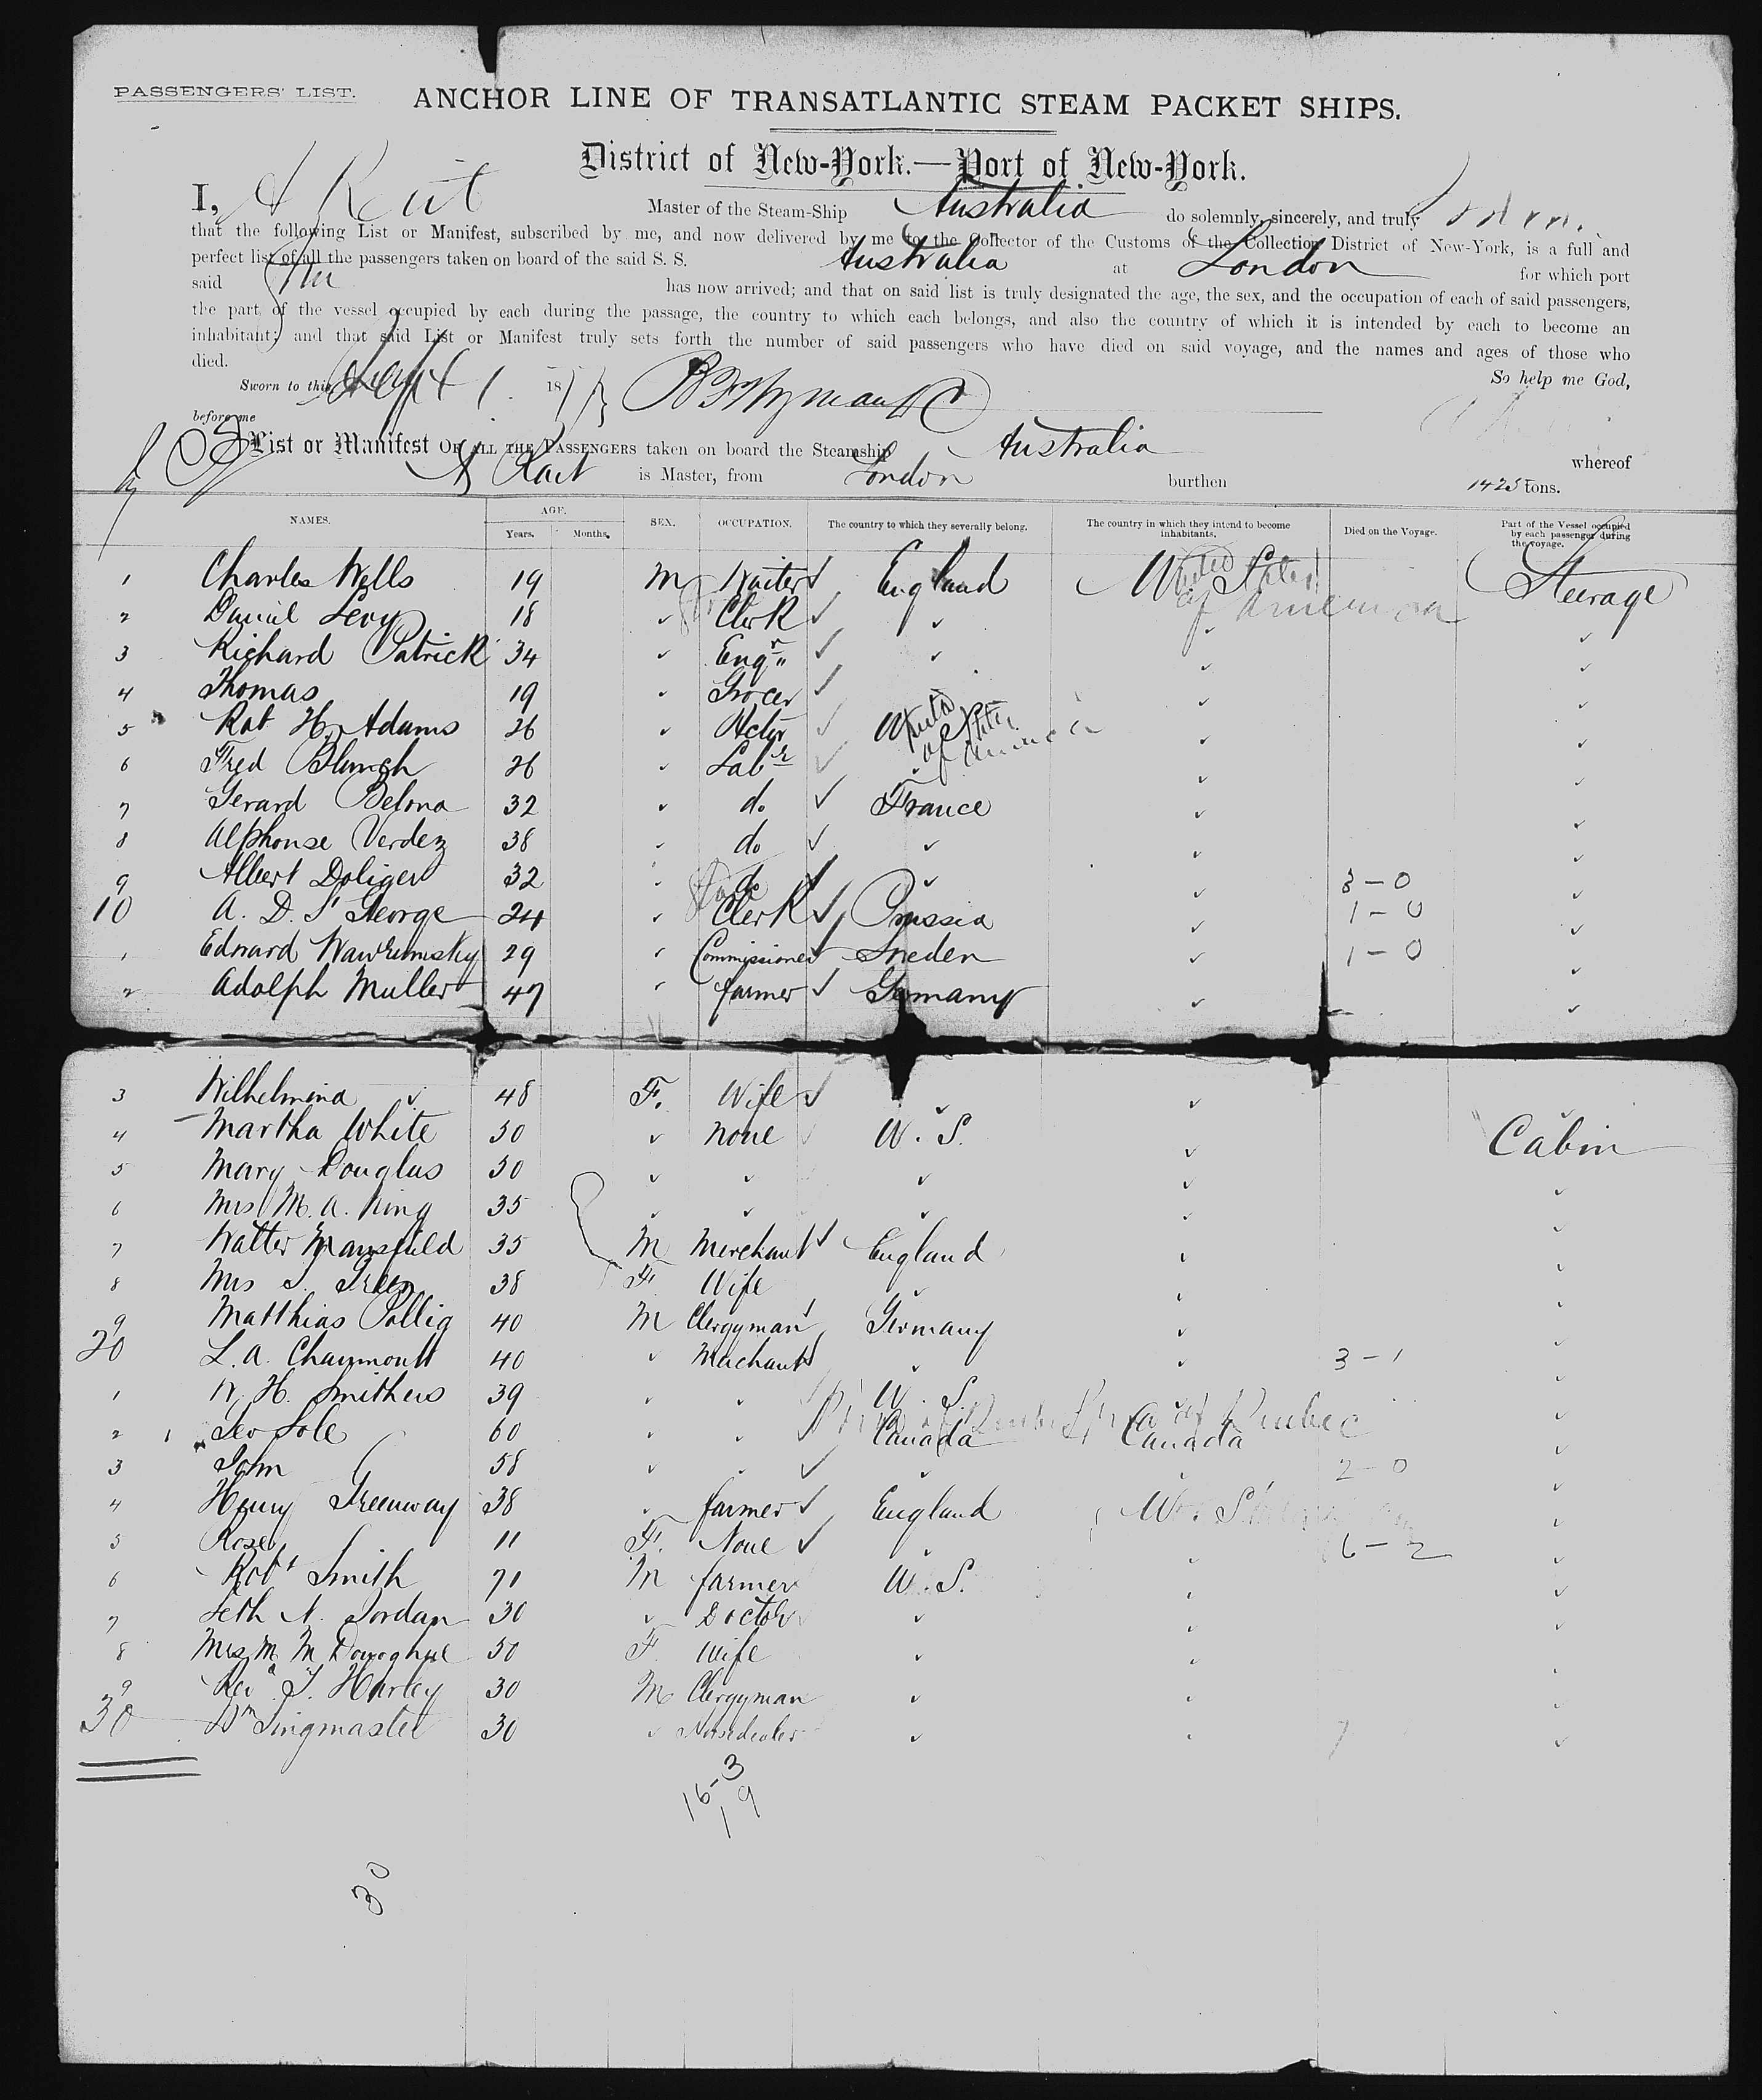 PASSENGERS' LIST.
ANCHOR LINE OF TRANSATLANTIC STEAM PACKET SHIPS.
District of New-York.—Port of New-York.
I, Master of the Steam-Ship Australia do solemnly, sincerely, and truly
that the following List or Manifest, subscribed by me, and now delivered by me to the Collector of the Customs of the Collection District of New-York, is a full and
perfect list of all the passengers taken on board of the said S. S. Australia at London for which port
said has now arrived; and that on said list is truly designated the age, the sex, and the occupation of each of said passengers,
the part of the vessel occupied by each during the passage, the country to which each belongs, and also the country of which it is intended by each to become an
inhabitant; and that said List or Manifest truly sets forth the number of said passengers who have died on said voyage, and the names and ages of those who
died. So help me God,
Sworn to this Sept 1 18
before me
List or Manifest OF ALL THE PASSENGERS taken on board the Steamship Australia whereof
is Master, from London burthen 1425 tons.
NAMES. AGE. SEX. OCCUPATION. The country to which they severally belong. The country in which they intend to become inhabitants. Died on the Voyage. Part of the Vessel occupied by each passenger during the voyage.
Years. Months.
1 Charles Wells 19 M Waiter England United States of America Steerage
2 Daniel Levy 18 Clerk
3 Richard Patrick 34 Engr
4 Thomas 19 Grocer
5 Rob H. Adams 26 Actor United States of America
6 Fred 26 Labr
7 Gerard Belona 32 do France
8 Alphonse Verdez 38 do
9 Albert Doliger 32 do 3-0
10 A. D. St George 24 Clerk Prussia 1-0
1 Edward 29 Commissioner Sweden 1-0
2 Adolph Muller 47 farmer Germany
3 Wilhelmina 48 F. Wife
4 Martha White 50 none U. S. Cabin
5 Mary Douglas 50
6 Mrs M. A. King 35
7 Walter Mansfield 35 M Merchant England
8 Mrs 38 F Wife
9 Matthias Pollig 40 M Clergyman Germany
20 L. A. Chaumontt 40 Merchant 3-1
1 W. H. Smithers 39 U. S.
2 Geo Sole 60 Canada Canada
3 John 58 2-0
4 Henry Greenway 38 farmer England
5 Rose 11 F. None 6-2
6 Robt Smith 71 M farmer U. S.
7 Seth N. Jordan 30 Doctor
8 Mrs M. McDonoghue 50 F Wife
9 Revd T. Hurley 30 M Clergyman
30 Wm Singmaster 30 Horsedealer 7
16-3
19
30